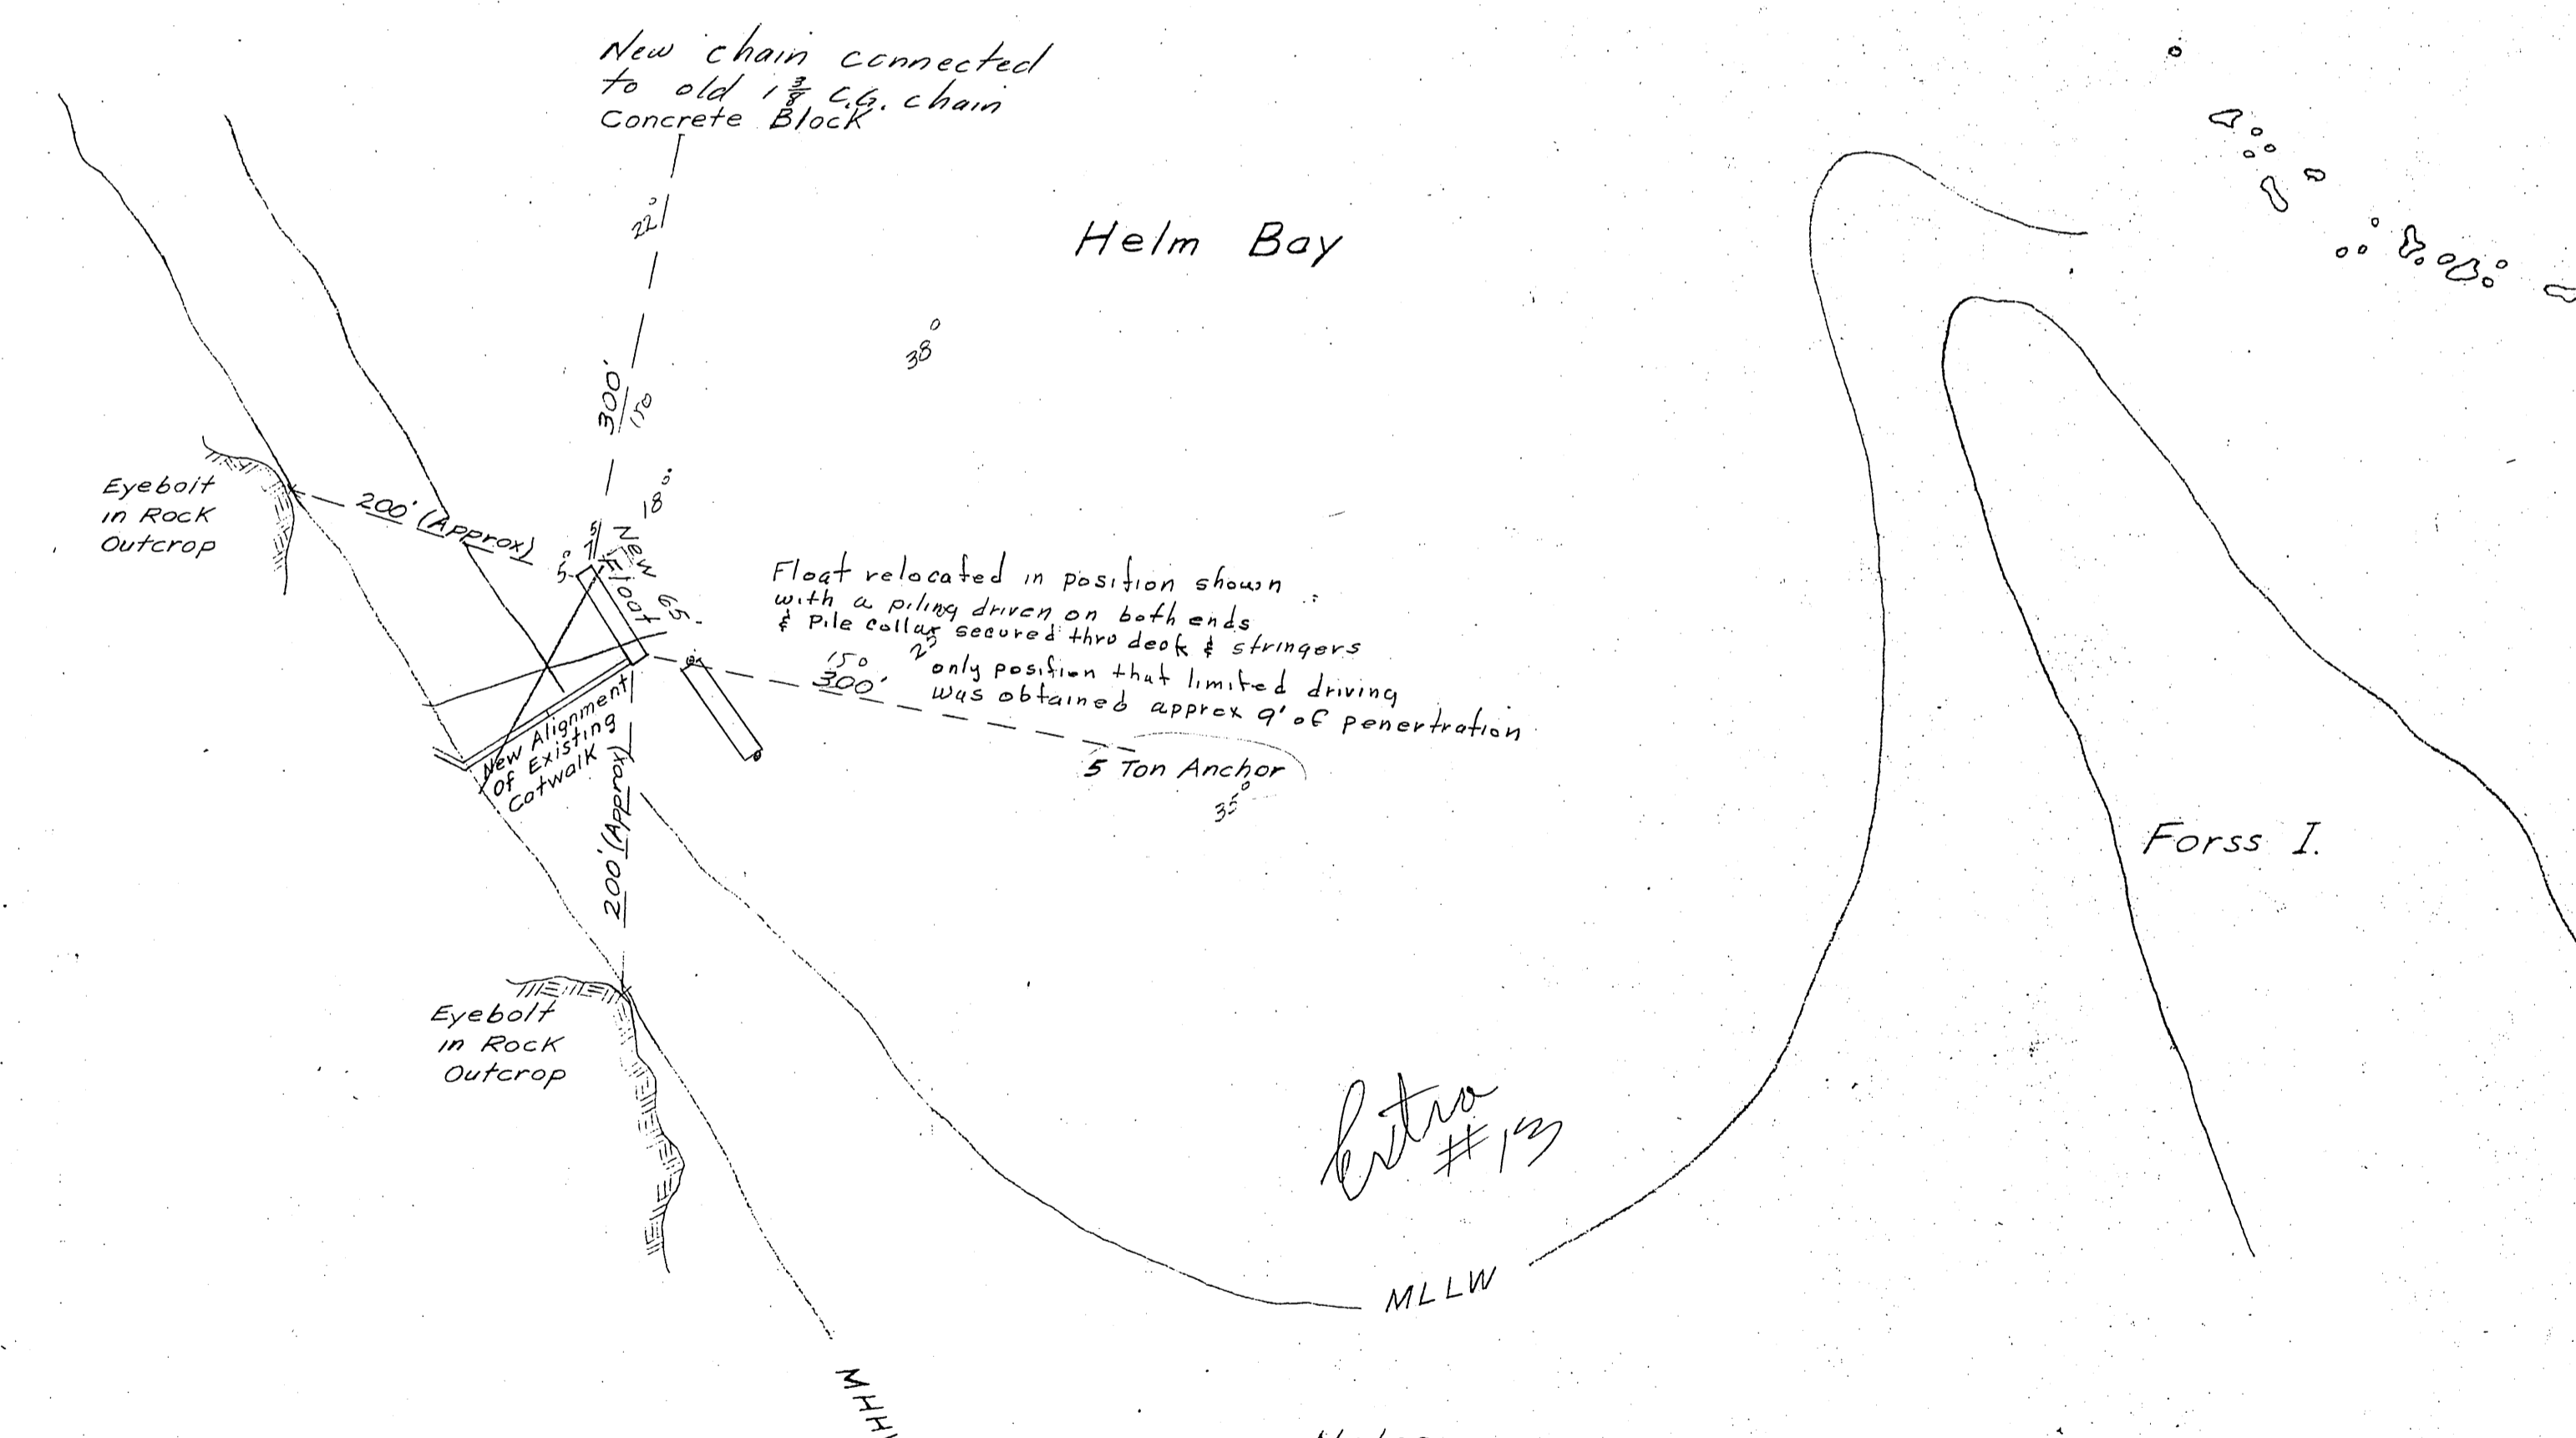 New chain connected
to old 1 3/8 C.G. chain
Concrete Block
22°
300'
150
Helm Bay
38°
18°
Eyebolt
in Rock
Outcrop
200' (Approx)
5
5°
New 65'
Float
Float relocated in position shown
with a piling driven on both ends
& Pile collar secured thro deck & stringers
only position that limited driving
was obtained approx 9' of penertration
150
300'
5 Ton Anchor
35°
New Alignment
Of Existing
Catwalk
200' (Approx)
Forss I.
Eyebolt
in Rock
Outcrop
Extra
#13
MLLW